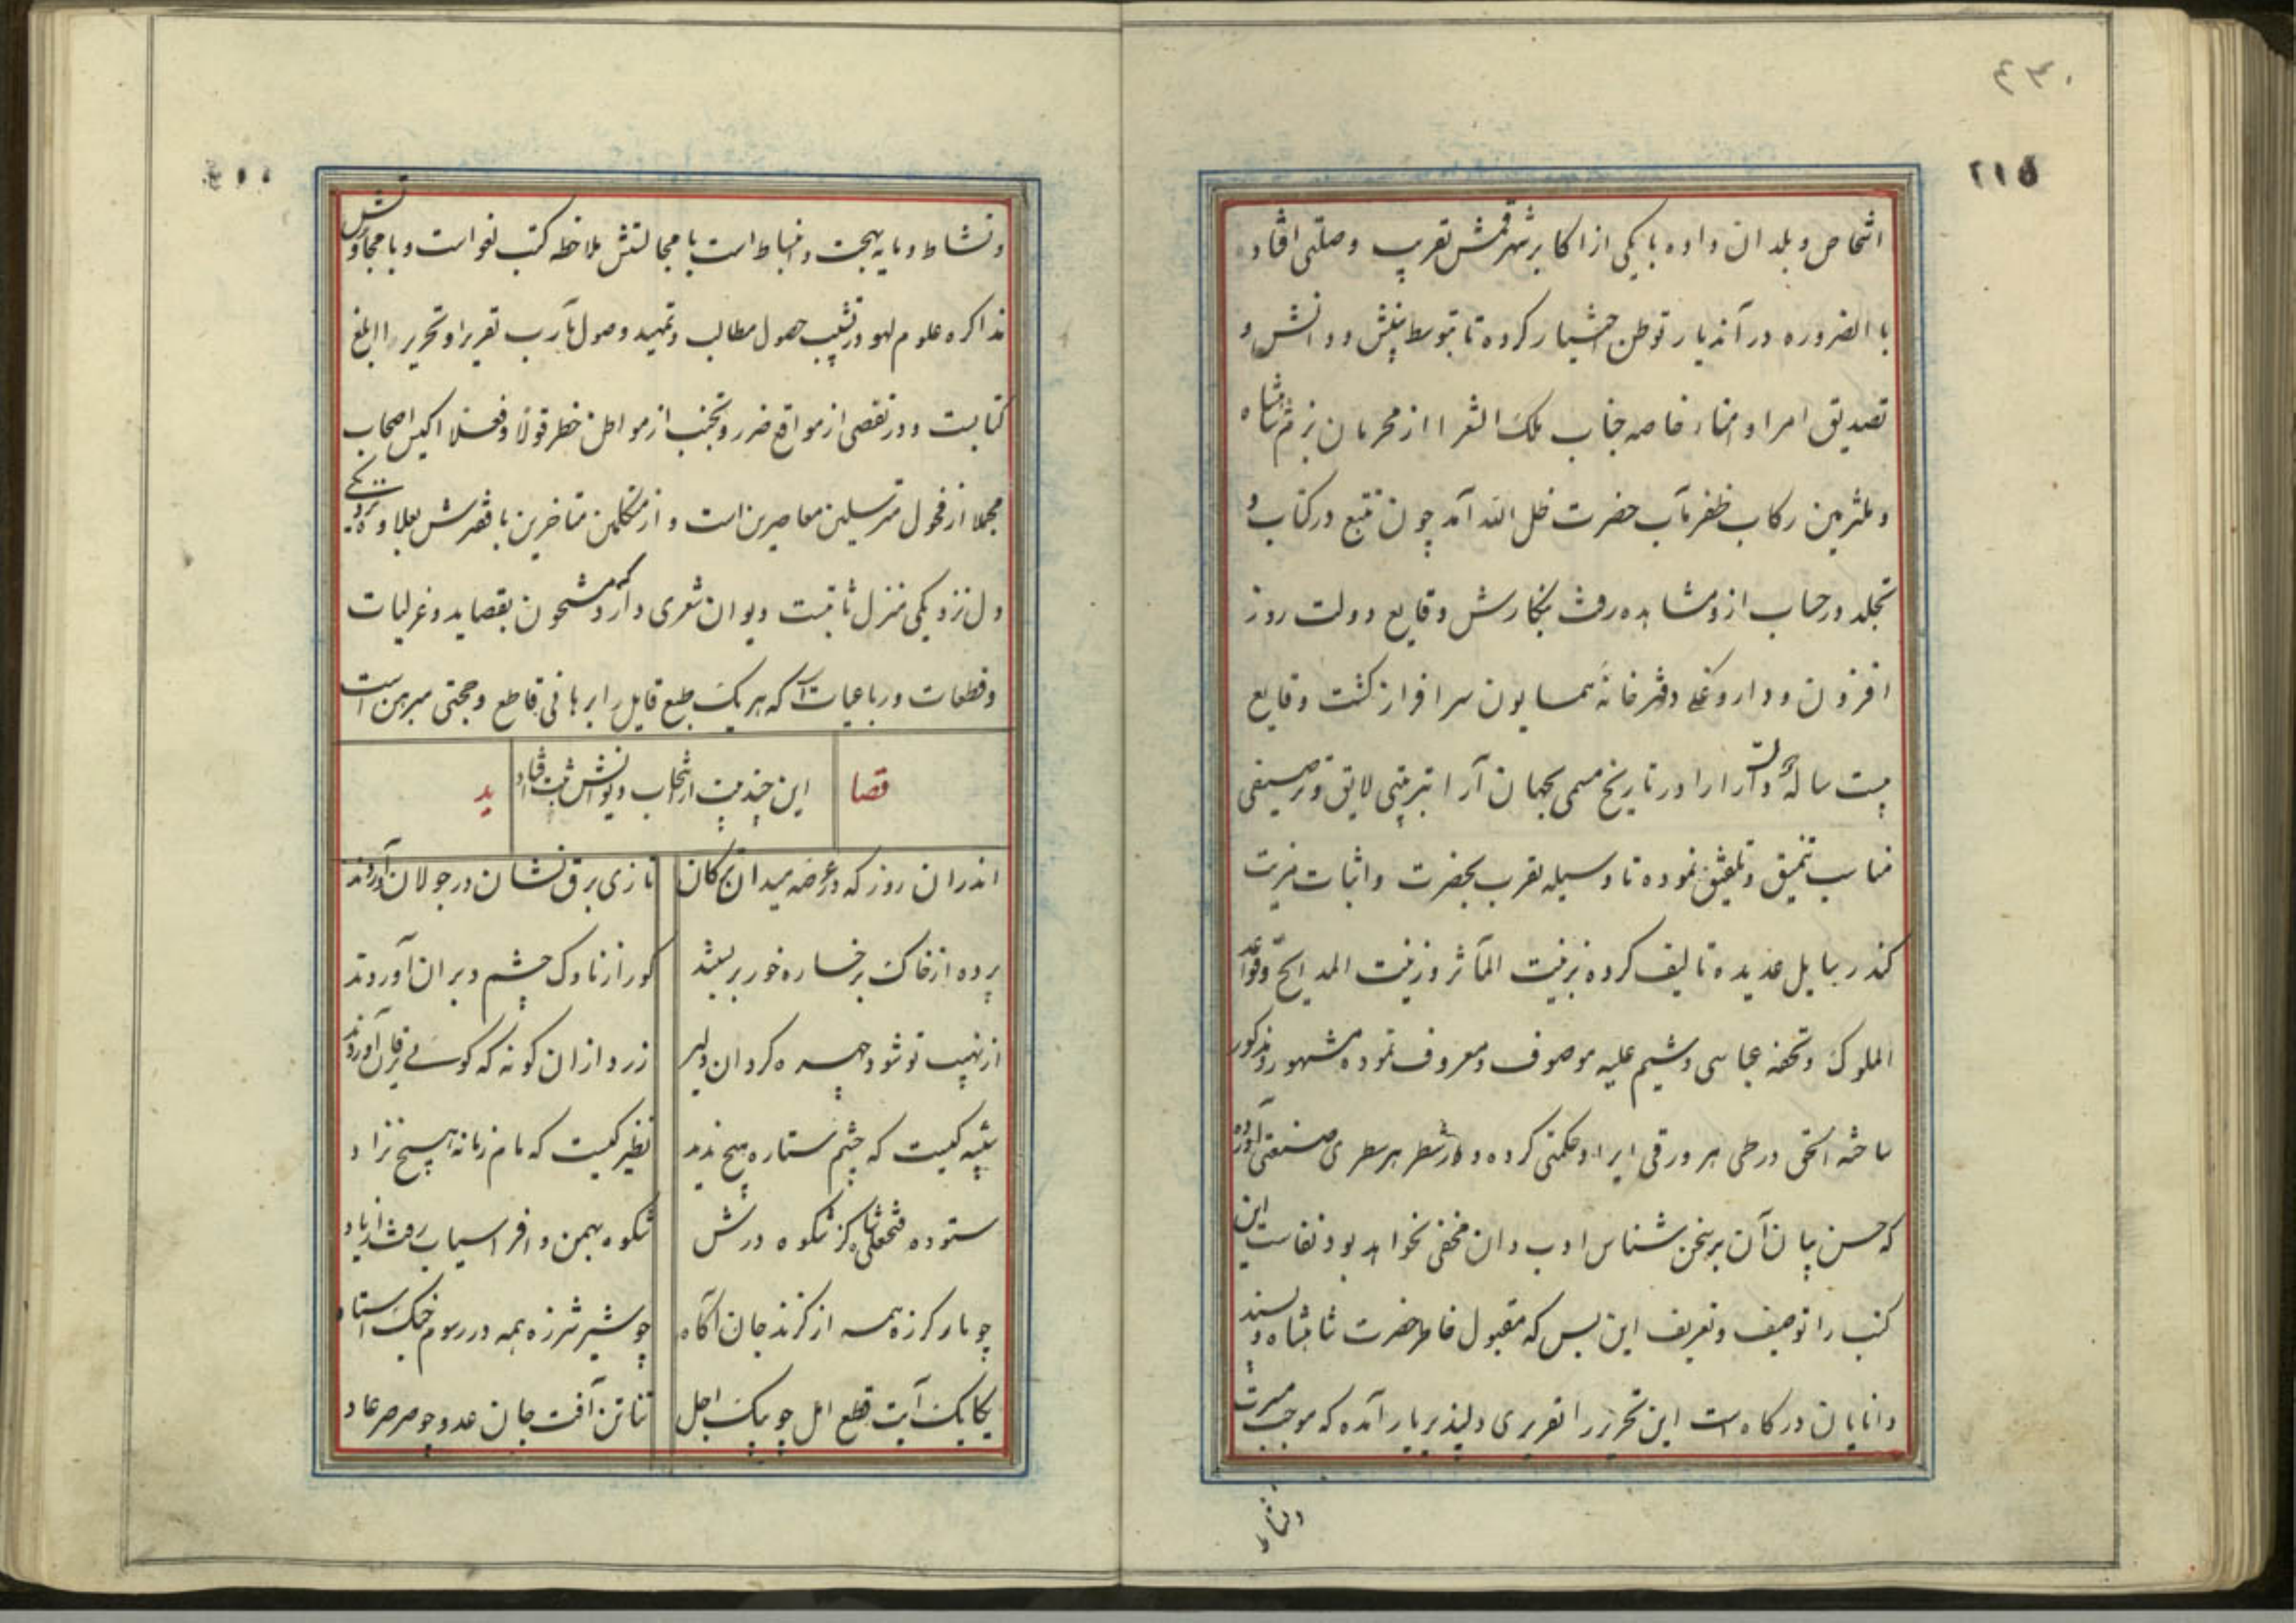 ۴۳۰
۲۱۵
اشخاص و بلدان داده با یکی از اکابر شهر قمش تقریب وصلتی افتاد
با الضروره در آندیار توطن اختیار کرده تا بتوسط بینش و دانش و
تصدیق امرا و امناء خاصه جناب ملک الشعرا از محرمان بزم شاه
و ملتزمین رکاب ظفر مآب حضرت ظل الله آمد چون تتبع در کتاب و
تجلد در حساب ازو مشاهده رفت بنکارش وقایع دولت روز
افزون و داروغکی دفترخانهٔ همایون سرافراز کشت وقایع
بیست سالهٔ دولت دارا را در تاریخ مسمی بجهان آرا بترتیبی لایق و ترصیفی
مناسب تنمیق و تلفیق نموده تا وسیله تقرب بحضرت و اثبات مزیت
کذر رسایل عدیده تالیف کرده بزینت المآثر و زینت المدایح و قواعد
الملوک و تحفه عباسی و شیم علیه موصوف و معروف نموده مشهور و مذکور
ساخته الحق در طی هر ورقی ایراد حکمتی کرده و در شطر هر سطری صنعتی آورده
که حسن بیان آن بر سخن شناس ادب دان مخفی نخواهد بود نفاست این
کتب را توصیف و تعریف این بس که مقبول خاطر حضرت شاهنشاه و پسند
دانایان درکاه است این تحریر را تقریری دلپذیر یار آمده که موجب مسرت
ونشاط
و نشاط و مایه بهجت و انبساط است با مجالستش ملاحظه کتب لغو است و با مجاورتش
مذاکره علوم لهو در تشبیب حصول مطالب و تمهید وصول مآرب تقریرا و تحریرا ابلغ
کتابست و در تفصی از مواقع ضرر و تجنب از مواطن خطر قولا و فعلا اکیس اصحاب
مجملا از فحول مترسلین معاصرین است و از متکلمین متاخرین با قصرش بعلاوه
دل نزدیکی منزل ثابتست دیوان شعری دارد که مشحون بقصاید و غزلیات
و قطعات و رباعیات است که هر یک طبع قایل را برهانی قاطع و حجتی مبرهن است
قصا
این چند بیت از انتخاب دیوانش ثبت افتاد
ید
اندران روز که در عرضه میدان ترکان
تازی برق نشان در جولان آوردند
پرده از خاک برخساره خور بر بستند
کور از ناوک چشم دبران آوردند
از نهیب تو شود چهره کردان دلیر
زرد از ان کونه که کوئی یرقان آوردند
شبیه کیست که چشم ستاره هیچ ندید
نظیر کیست که مام زمانه هیچ نزاد
ستوده فتحعلی شاه کز شکوه درش
شکوه بهمن و افراسیاب رفت از یاد
چو مار کرزه همه از کزند جان آکاه
چو شیر شرزه همه در رسوم جنک استاد
یکایک آیت قطع امل چو پیک اجل
تناتن آفت جان عدو چو صرصر عاد